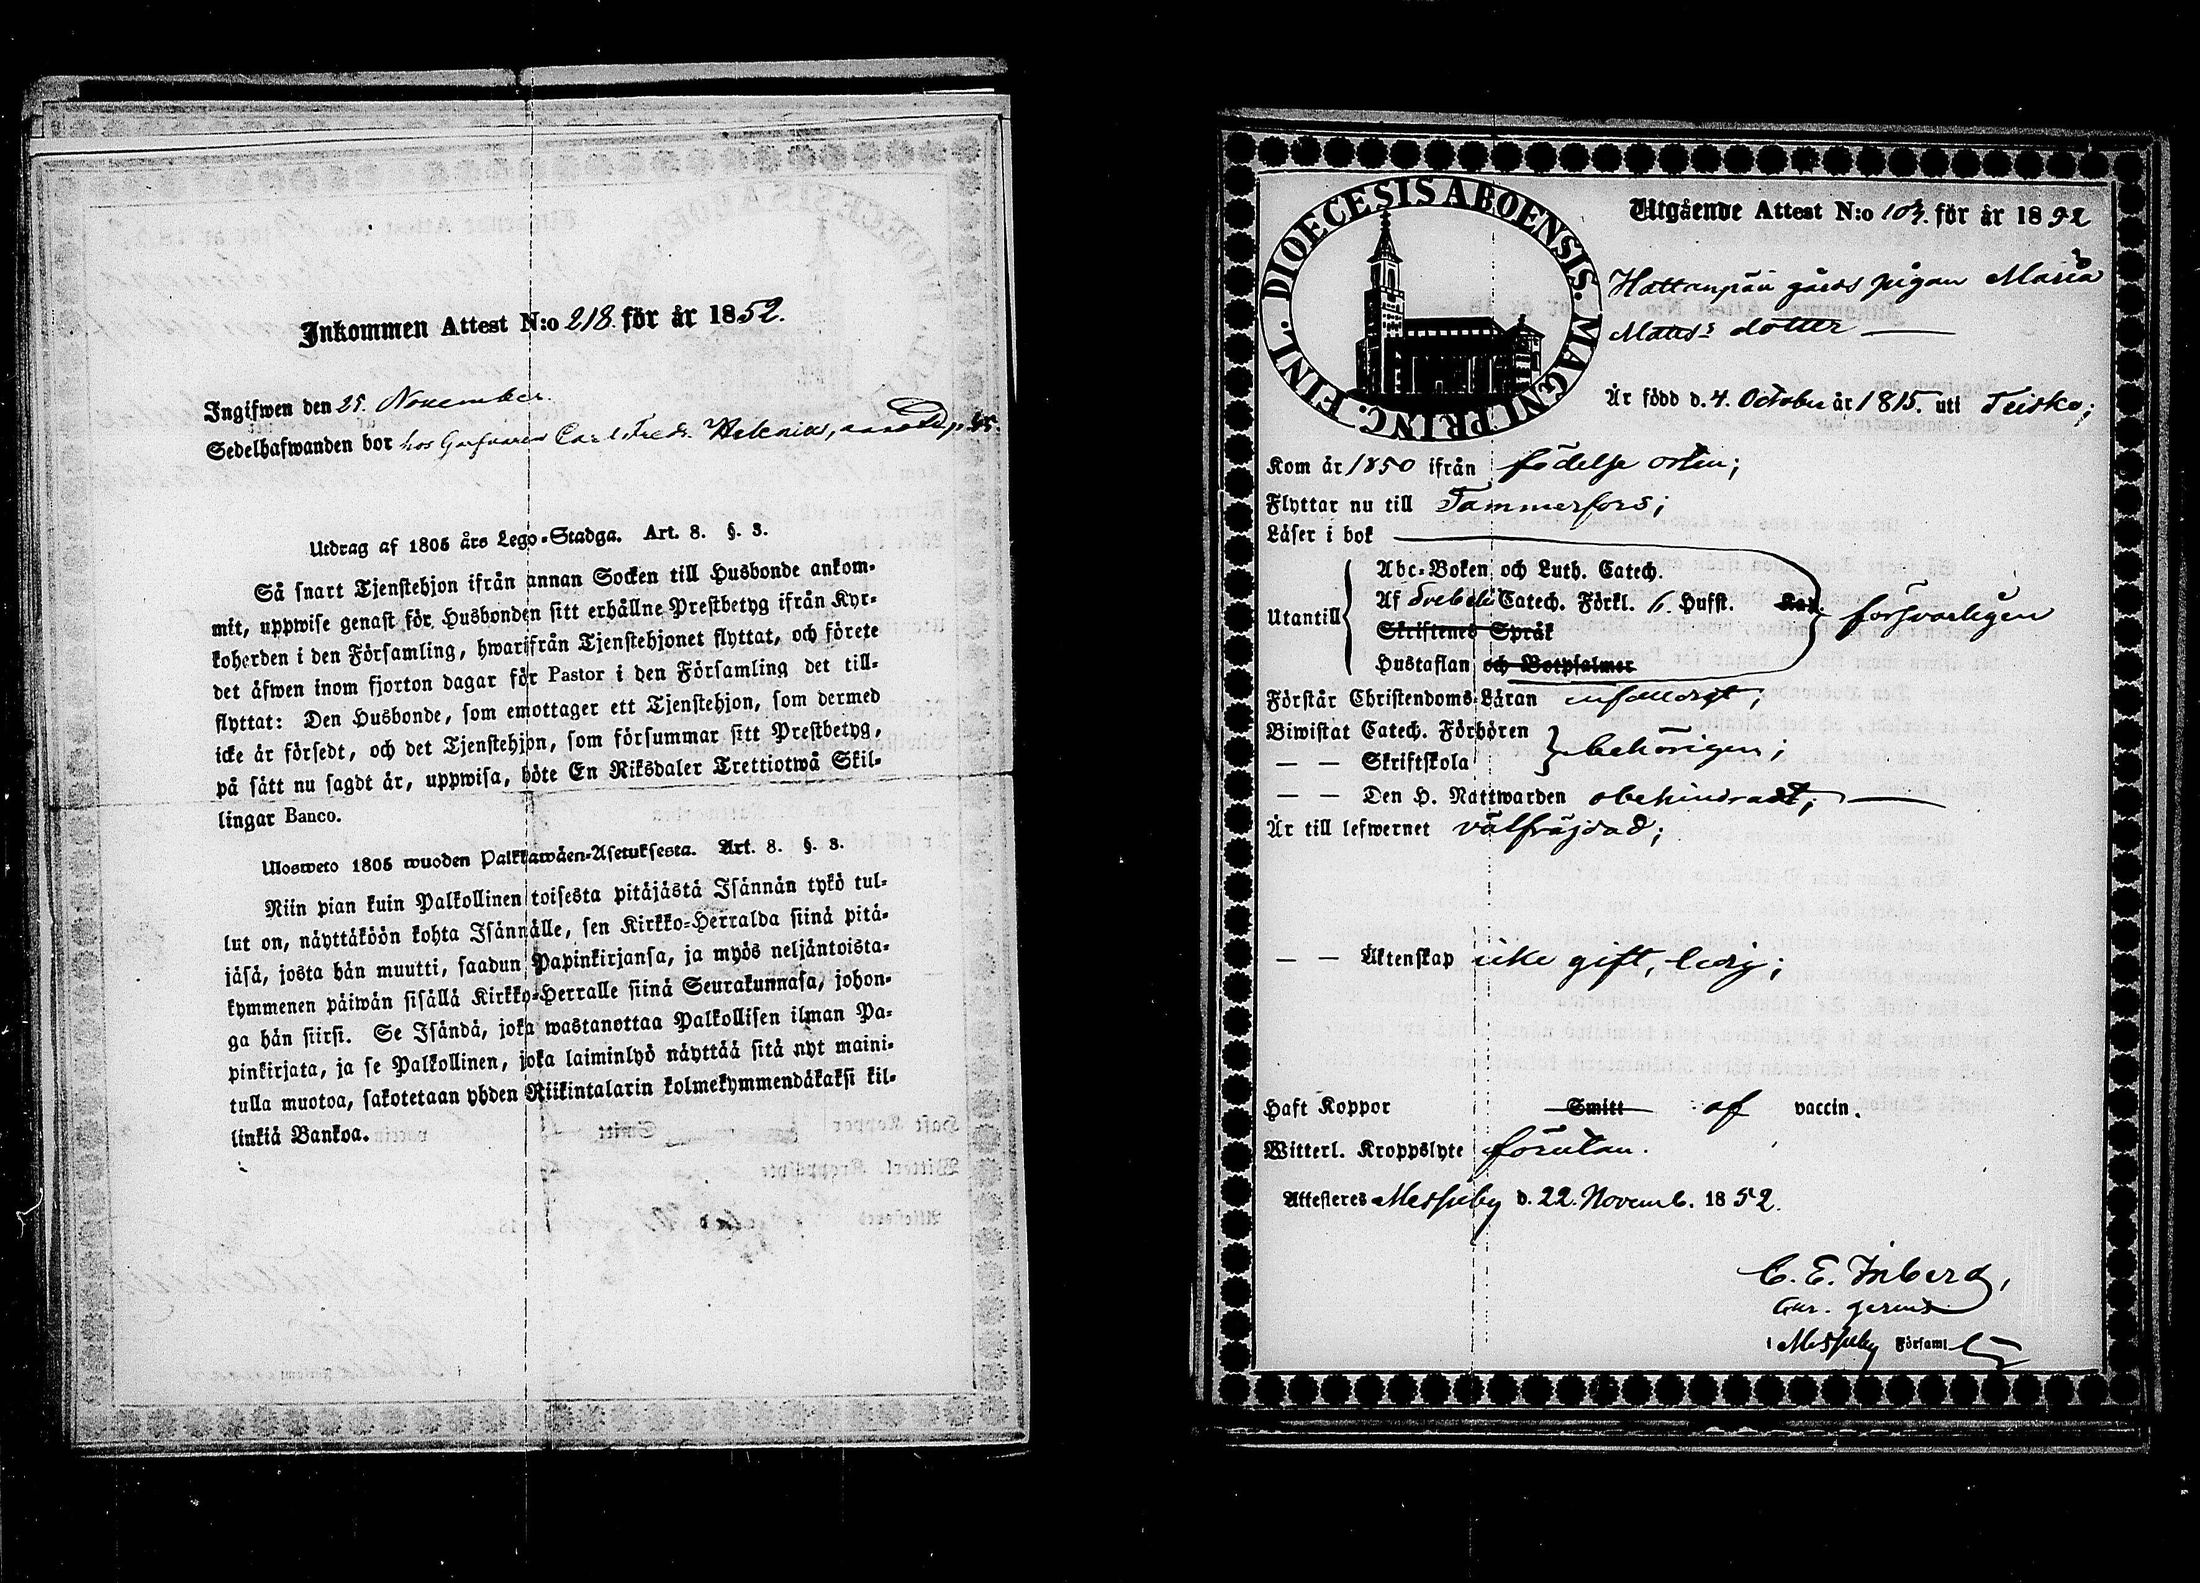 Inkommen Attest N:o 218. för år 1852.
Ingifwen den 25. November.
Sedelhafwanden bor hos Garfvaren Carl Fredr. Helenius,
Utdrag af 1805 års Lego-Stadga. Art. 8. §. 3.
Så snart Tjenstehjon ifrån annan Socken till Husbonde ankom-
mit, uppwise genast för Husbonden sitt erhållne Prestbetyg ifrån Kyr-
koherden i den Församling, hwarifrån Tjenstehjonet flyttat, och förete
det äfwen inom fjorton dagar för Pastor i den Församling det till-
flyttat: Den Husbonde, som emottager ett Tjenstehjon, som dermed
icke är försedt, och det Tjenstehjon, som försummar sitt Prestbetyg,
på sätt nu sagdt är, uppwisa, böte En Riksdaler Trettiotwå Skil-
lingar Banco.
Ulosweto 1805 wuoden Palkkawäen-Asetuksesta. Art. 8. §. 3.
Niin pian kuin Palkollinen toisesta pitäjästä Isännän tykö tul-
lut on, näyttäköön kohta Isännälle, sen Kirkko-Herralda siinä pitä-
jäsä, josta hän muutti, saadun Papinkirjansa, ja myös neljäntoista-
kymmenen päiwän sisällä Kirkko-Herralle siinä Seurakunnasa, johon-
ga hän siirsi. Se Isändä, joka wastanottaa Palkollisen ilman Pa-
pinkirjata, ja se Palkollinen, joka laiminlyö näyttää sitä nyt maini-
tulla muotoa, sakotetaan yhden Riikintalarin kolmekymmendäkaksi kil-
linkiä Bankoa.
FINL. DIOECESIS ABOENSIS. MAGNI PRINC.
Utgående Attest N:o 103. för år 1852
Hattanpää gårds pigan Maria
Matts dotter
Är född d. 4. October år 1815. uti Teisko;
Kom år 1850 ifrån födelse orten;
Flyttar nu till Tammerfors;
Läser i bok
Abc-Boken och Luth. Catech.
Utantill Af Svebeli Catech. Förkl. 6. Hufst. Kap. försvarligen
Skriftenes Språk
Hustaflan och Botpsalmer
Förstår Christendoms-Läran enfaldigt;
Biwistat Catech. Förhören
— — Skriftskola behörigen;
— — Den H. Nattwarden obehindradt;
Är till lefwernet välfräjdad;
— — Äktenskap icke gift, ledig;
Haft Koppor Smitt af vaccin.
Witterl. Kroppslyte förutan.
Attesteres Messuby d. 22. Novemb. 1852.
C. E. Inberg,
Cur. gerens
i Messuby Församl